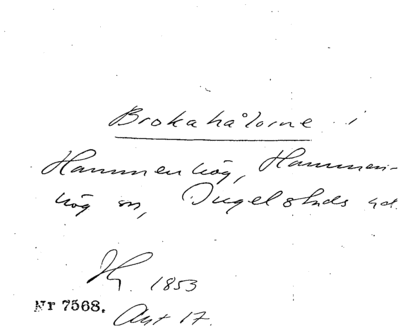 Brokahålorne i
Hammenhög, Hammen-
hög sn, Ingelstads hd.
1853
Nr 7568.
Ant 17.